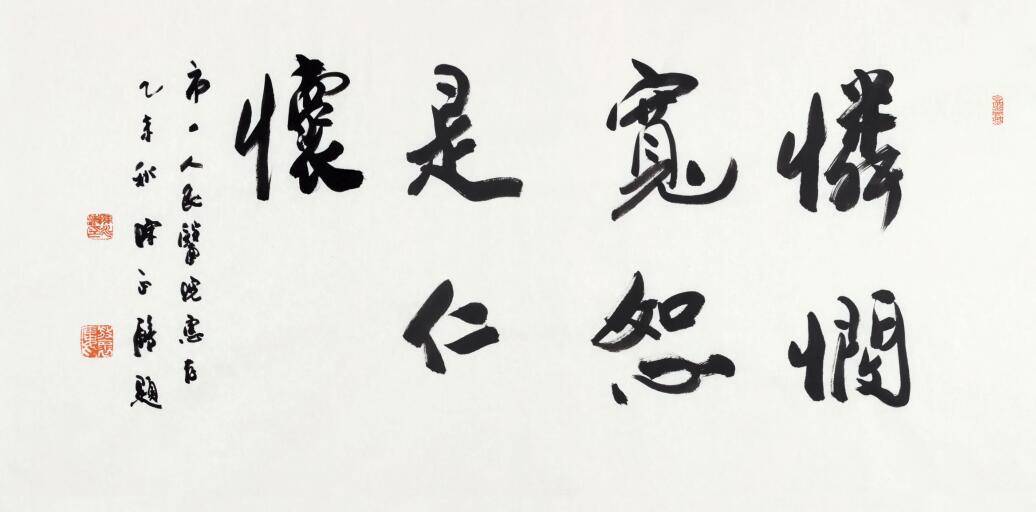 憐憫
寬恕
是仁
懷
市一人民醫院惠存
乙未秋 陳正 題